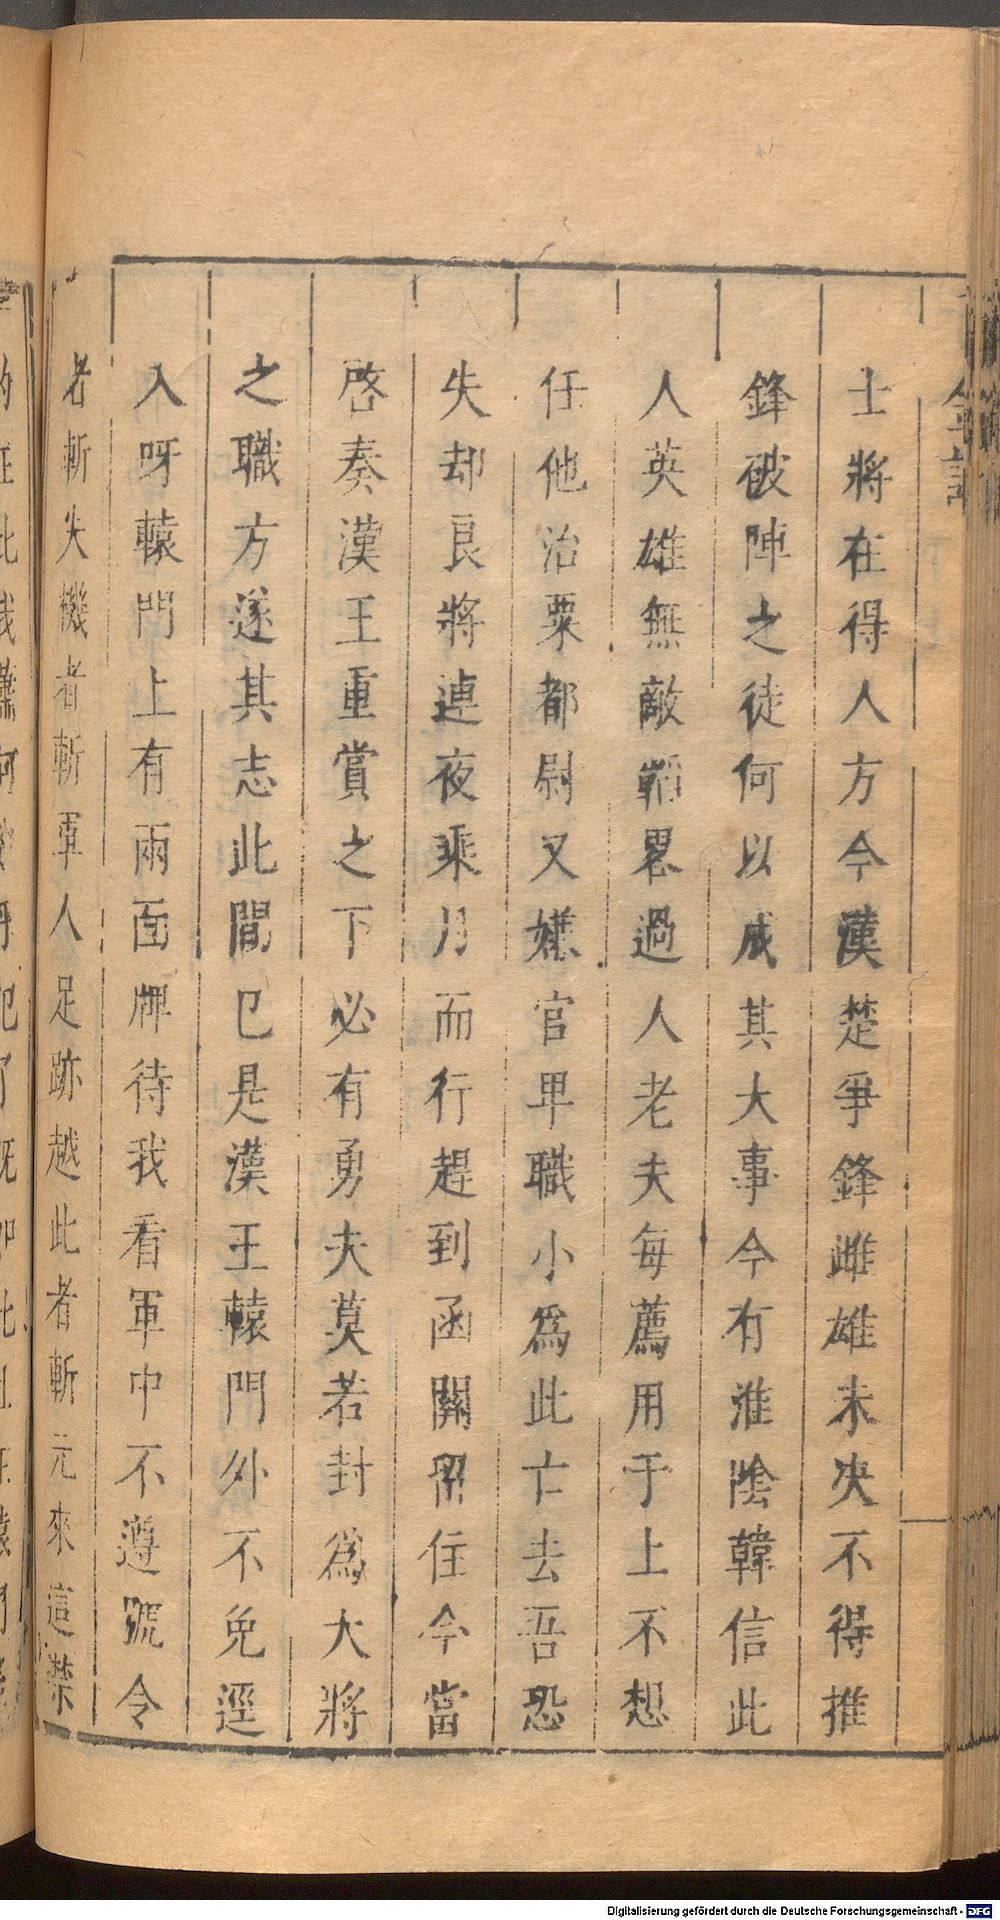 士將在得人方今漢楚爭鋒雌雄未决不得推
鋒破陣之徒何以成其大事今有淮陰韓信此
人英雄無敵韜畧過人老夫每薦用于上不想
任他治粟都尉又嫌官卑職小爲此亡去吾恐
失却良將連夜乘月而行趕到函關留住今當
啓奏漢王重賞之下必有勇夫莫若封爲大將
之職方遂其志此間已是漢王轅門外不免逕
入呀轅門上有兩面牌待我看軍中不遵號令
者斬失機者斬軍人足跡越此者斬元來這禁
Digitalisierung gefördert durch die Deutsche Forschungsgemeinschaft - DFG